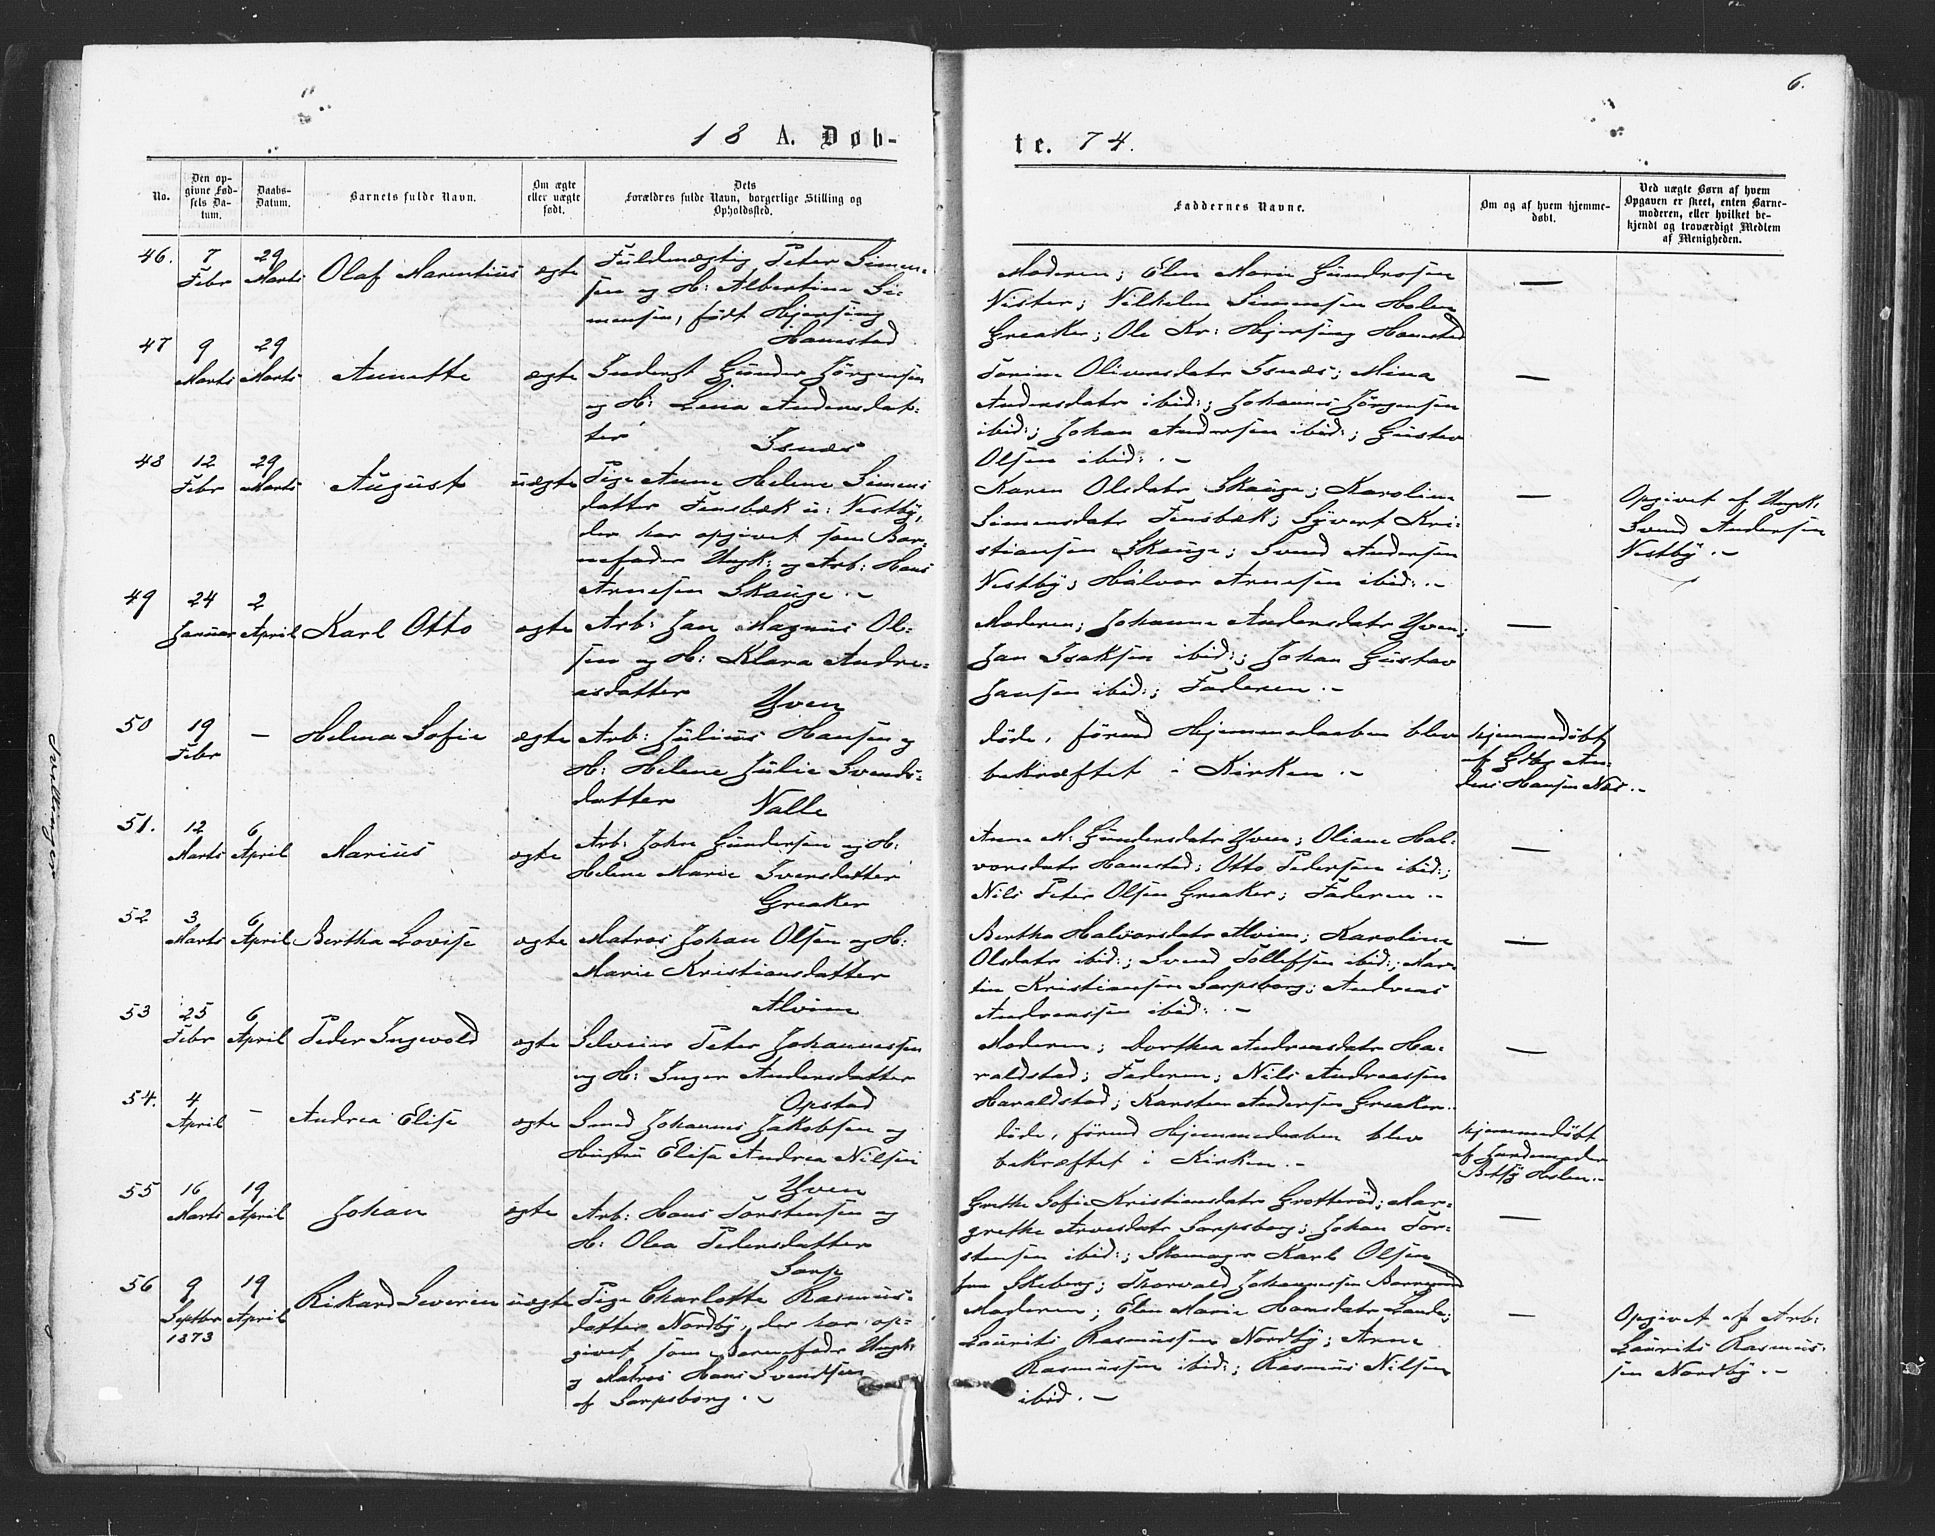 6.
18 A. Døb-
te. 74.
No.
Den op-
givne Fød-
sels Da-
tum.
Daabs-
Datum.
Barnets fulde Navn.
Om ægte
eller uægte
født.
Dets
Forældres fulde Navn, borgerlige Stilling og
Opholdssted.
Faddernes Navne.
Om og af hvem hjemme-
døbt.
Ved uægte Børn af hvem
Opgaven er skeet, enten Barne-
moderen, eller hvilket be-
kjendt og troværdigt Medlem
af Menigheden.
46. 7 Febr 29 Marts Olaf Marentius ægte
Fuldmægtig Peter Simen-
sen og H: Albertine Si-
mensen, født Hjersing
Hanestad
Moderen; Elen Marie Gundersen
Vister; Vilhelm Simensen Holen
Greaker; Ole Kr: Hjersing Hanestad
—
47 9 Marts 29 Marts Annette ægte
Inderst Gunder Jörgensen
og H: Lina Andersdat-
ter
Isnæs
Torine Oliversdatr Isnæs; Mina
Andersdatr ibid:; Johannes Jörgensen
ibid:; Johan Andersen ibid:; Gustav
Olsen ibid: .-
—
48 12 Febr 29 Marts August uægte
Pige Anne Helene Simens
datter Tensbæk u: Vestby,
der har opgivet som Bar-
nefader Ungk: og Arb: Hans
Arnesen Skauge .-
Karen Olsdatr Skauge; Karoline
Simensdatr Tensbæk; Syvert Kri-
stiansen Skauge; Svend Andersen
Vestby; Halvor Arnesen ibid: .-
—
Opgivet af Ungk:
Svend Andersen
Vestby .-
49 24 Januar 2 April Karl Otto ægte
Arb: Jan Magnus Ol-
sen og H: Klara Andre-
asdatter
Yven
Moderen; Johanne Andersdatr Yven;
Jan Isaksen ibid:; Johan Gustav
Jansen ibid:; Faderen .-
—
50 19 Febr - Helma Sofie ægte
Arb: Julius Hansen og
H: Helene Julie Svends-
datter
Valle
döde, förend Hjemmedaaben blev
bekræftet i Kirken .-
hjemmedöbt
af Gbr An-
ders Hansen Næs .-
51. 12 Marts 6 April Marius ægte
Arb: John Gundersen og H:
Helene Marie Iversdatter
Greaker
Anne M: Gundersdatr Yven; Oliane Hal-
vorsdatr Hanestad; Otto Pedersen ibid:;
Nils Peter Olsen Greaker; Faderen .-
—
52 3 Marts 6 April Bertha Lovise ægte
Matros Johan Olsen og H:
Marie Kristiansdatter
Alvim
Bertha Halvorsdatr Alvim; Karoline
Olsdatr ibid:; Svend Tollefsen ibid:; Mar-
tin Kristiansen Sarpsborg; Andreas
Andreassen ibid: .-
—
53 25 Febr 6 April Peder Ingvold ægte
Selveier Peter Johannessen
og H: Inger Andersdatter
Opstad
Moderen; Dorthea Andreasdatr Ha-
raldstad; Faderen; Nils Andreassen
Haraldstad; Karsten Andersen Greaker .-
—
54. 4 April - Andrea Elise ægte
Smed Johannes Jakobsen og
Hustru Elise Andrea Nilsen
Yven
döde, förend Hjemmedaaben blev
bekræftet i Kirken .-
hjemmedöbt
af Jordemoder
Betsy Holen .-
55 16 Marts 19 April Johan ægte
Arb: Hans Torstensen og
H: Olea Pedersdatter
Sarp
Grethe Sofie Kristiansdatr Grotteröd; Mar-
grethe Arvesdatr Sarpsborg; Johan Tor-
stensen ibid:; Skomager Karl Olsen
fra Skeberg; Thorvald Johannesen Borregaard
—
56 9 Septbr 1873 19 April Rikard Severin uægte
Pige Charlotte Rasmus-
datter Nordby, der har op-
givet som Barnefader Ungk:
og Matros Hans Svendsen
af Sarpsborg .-
Moderen; Elen Marie Hansdatr Lande;
Laurits Rasmussen Nordby; Arne
Rasmussen ibid:; Rasmus Nilsen
ibid .-
—
Opgivet af Arb:
Laurits Rasmus-
sen Nordby .-
Tvillinger